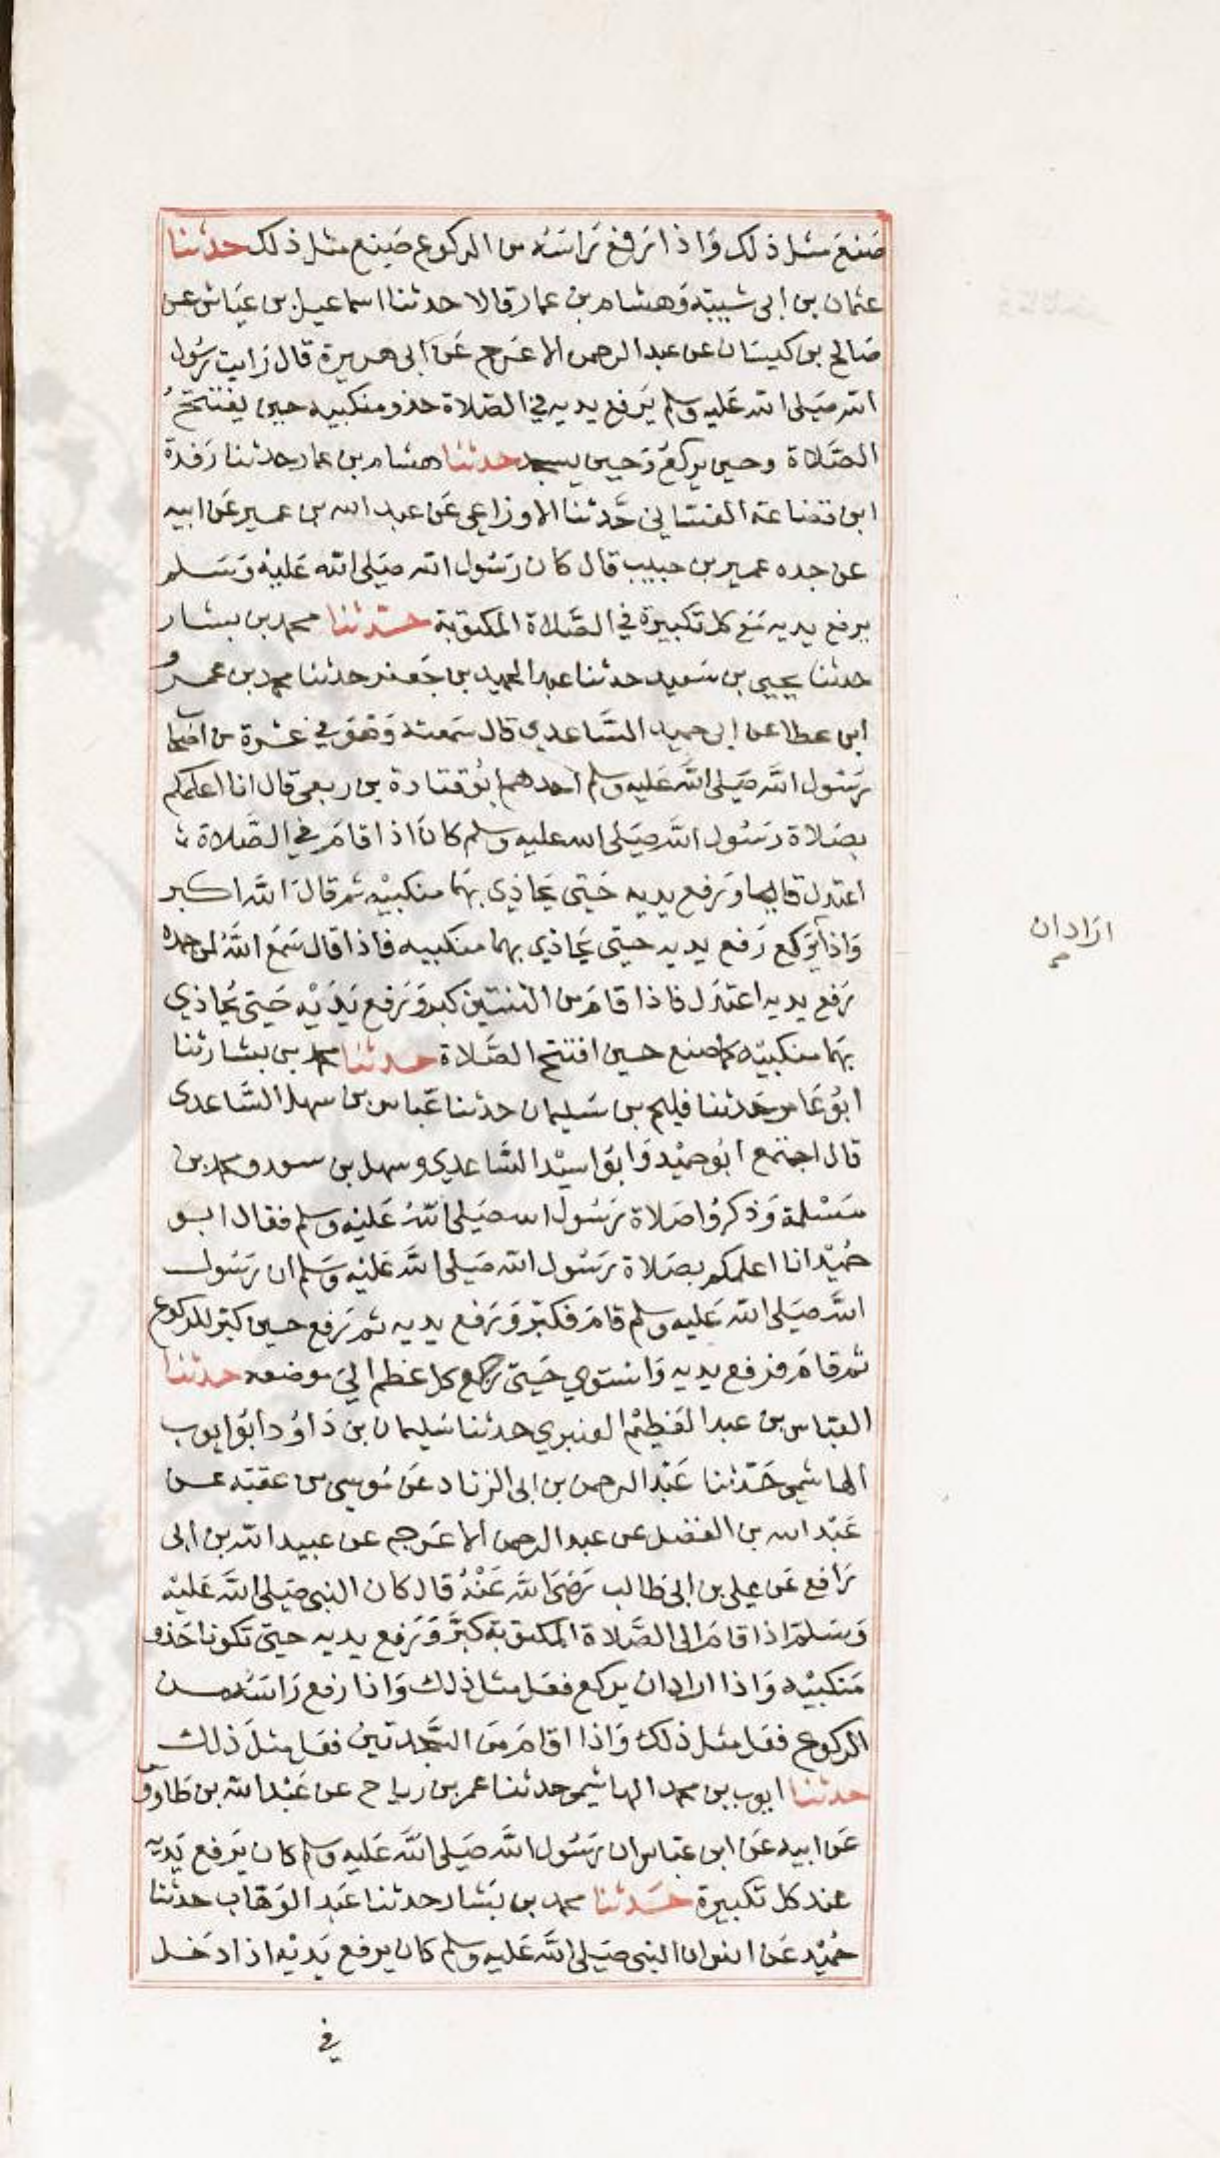 صَنَعَ مثل ذلك وَاذا رَفع رَاسَه من الركوع صَنع مثل ذلك حدثنا
عثمان بن ابى شيبة وَهشام بن عمار قالا حدثنا اسماعيل بن عيَاش عن
صَالح بن كيسَان عن عبد الرحمن الاعرج عَن ابى هريرة قال رَايت رسُول
الله صَلى الله عَليه وسلم يَرفع يديه في الصَلاة حذو منكبيه حين يفتتحُ
الصَلاة وحين يركعُ وَحين يسجد حدثنا هشام بن عمار حدثنا رَفدة
ابن قضاعة الغسَاني حَدثنا الاوزاعى عَن عبد الله بن عمير عَن ابيه
عن جده عمير بن حبيب قال كان رَسُول الله صَلى الله عَليْه وَسَلم
يرفع يديه مَع كل تكبيرة في الصَّلاة المكتوبة حَدثنا محمد بن بشار
حدثنا يحيى بن سَعيد حدثنا عبد الحميد بن جَعفر حدثنا محمد بن عمرو
ابن عطا عن ابى حميد السَّاعدي قال سَمعته وَهوَ في عَشرة من اصحَاب
رَسُول الله صَلى الله عَليه وسلم احدهم ابُو قتادة بن ربعى قال انا اعلمكم
بصَلاة رَسُول الله صَلى الله عليه وسلم كانَ اذا قامَ في الصَّلاة
اعتدل قايما وَرَفع يديه حَتى يحَاذِي بهَما منكبيْه ثم قالَ الله اكبر
وَاذا يَركع رَفع يديه حَتى يحَاذي بهما منكبيه فاذا قال سَمعَ اللهُ لمن حمده
رَفع يديه اعتدَل فاذا قامَ من الثنتين كبر وَرَفع يَدَيْه حَتى يُحاذي
بهَما منكبيْه كما صنع حين افتتح الصَّلاة حدثنا محمد بن بشار ثنا
ابُو عَامر حَدثنا فليح بن سُليمان حدثنا عَباس بن سهل السَّاعدى
قال اجتمع ابُو حميْد وَابوُ اسيْد السَّاعدي وسهل بن سعد ومحمد بن
مَسْلمة وَذكرُوا صَلاة رَسُول الله صَلى اللهُ عَليْه وسلم فقال ابو
حُميْد انا اعلمكم بصَلاة رَسُول الله صَلى الله عَليْه وَسَلم ان رَسُول
الله صَلى الله عَليه وسلم قامَ فكبّر وَرَفع يديه ثم رَفع حين كبّر للركوع
ثم قامَ فرفع يديه وَاستوي حَتى رَجع كل عَظم الىَ موضعه حدثنا
العبَاس بن عبد العَظيْم العنبري حدثنا سُليمان بن دَاوُد ابُو ايوب
الهاشمي حَدّثنا عَبْد الرحمن بن ابى الزناد عَن مُوسى بن عقبَة عن
عَبْد الله بن الفضل عن عبد الرحمن الاعرج عن عبيد الله بن ابى
رَافع عَن على بن ابى طَالب رَضىَ اللهَ عَنْهُ قال كان النبى صَلى الله عَليْه
وَسَلمَ اذا قامَ الى الصَّلاة المكتوبة كبّرَ وَرَفع يديه حتى تكونا حَذو
مَنكبيْه وَاذا ارادان يركع فعَل مثل ذلك وَاذا رَفع رَاسَهُ من
الركوع فعَل مثل ذلك وَاذا اقامَ منَ السَّجدتين فعَل مثلَ ذلك
حدثنا ايوب بن محمد الهاشمي حدثنا عمر بن رياح عن عَبْد الله بن طاوُس
عَن ابيه عَن ابن عبَاس ان رَسُول الله صَلى اللهَ عَليه وسلم كان يَرفع يَديه
عند كل تكبيرة حَدثنا محمد بن بَشار حدثنا عَبد الوَهَّاب حدثنا
حُميْد عَن انس ان النبى صَلى الله عَليه وسلم كان يرفع يَديْه اذا دَخل
في
ارَادان